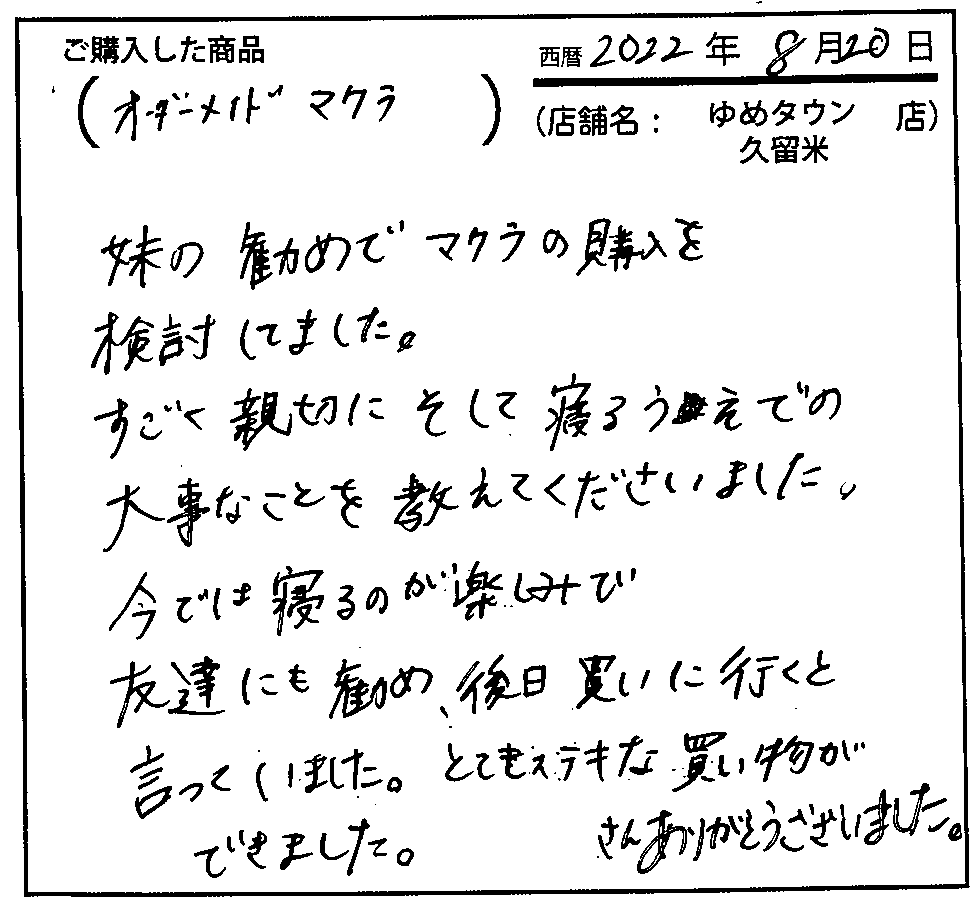 ご購入した商品
(オーダーメイド マクラ)
西暦 2022 年 8 月 20 日
(店舗名: ゆめタウン 店)
久留米
妹の 勧めで マクラの購入を
検討してました。
すごく 親切に そして 寝るうえでの
大事なことを 教えてくださいました。
今では 寝るのが 楽しみで
友達にも 勧め、後日 買いに 行くと
言っていました。とてもステキな 買い物が
できました。 さんありがとうございました。